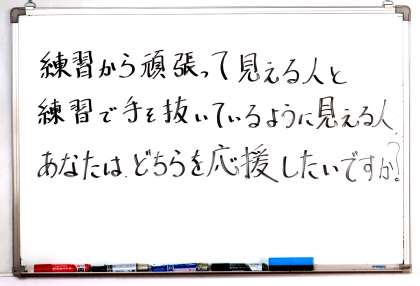 練習から頑張って見える人と
練習で手を抜いているように見える人
あなたは、どちらを応援したいですか?